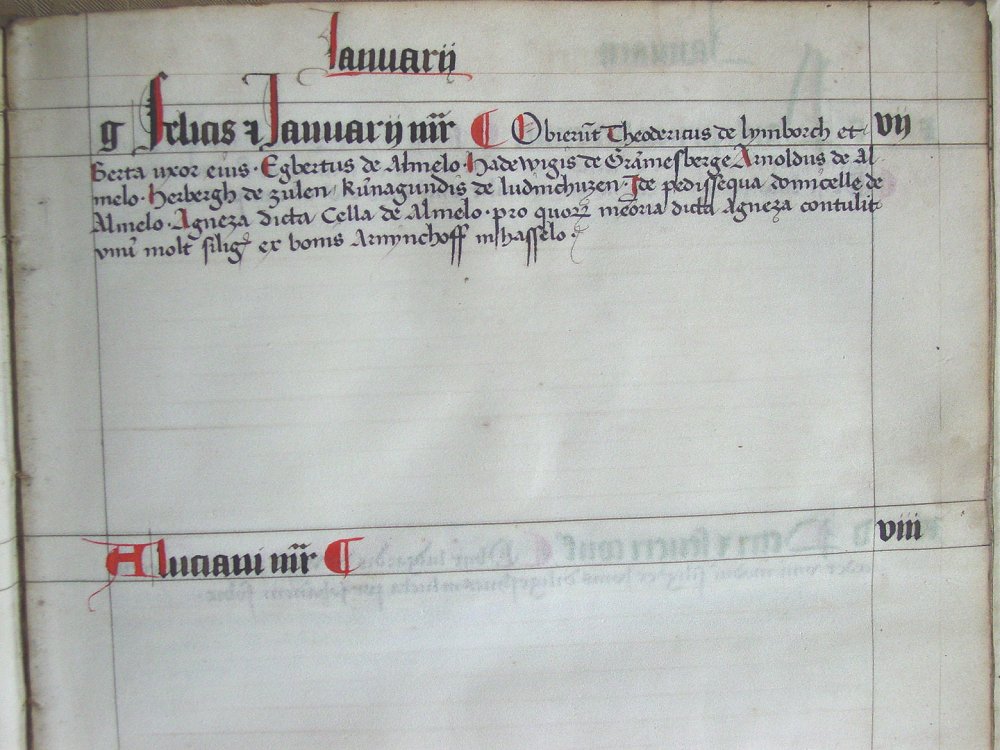 Januarij
g Felicis ⁊ Januarij mr̄r ¶ Obierūt Theodericus de lymborch et vij
Berta uxor eius · Egbertus de Almelo · Hadewigis de Grāmesberge Arnoldus de Al
melo · Herbergh de zulen · Kūnagundis de ludinchuzen · Ide pedissequa domicelle de
Almelo · Agneza dicta Cella de Almelo · pro quoꝝ meōria dicta Agneza contulit
vnū molt siliḡ ex bonis Arnynchoff in hasselo ·
A luciani mr̄r ¶ viii